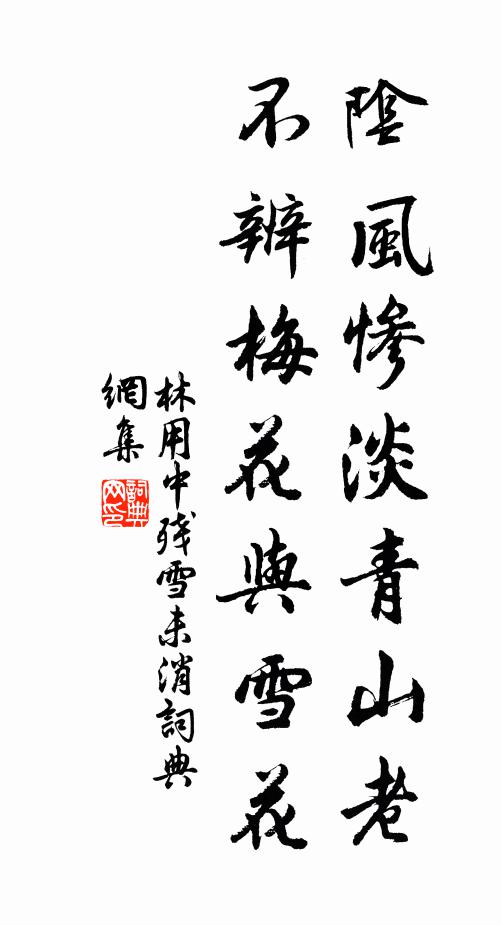 陰風慘淡青山老
不辨梅花與雪花
林用中残雪未消詞典
網集
詞典
网印